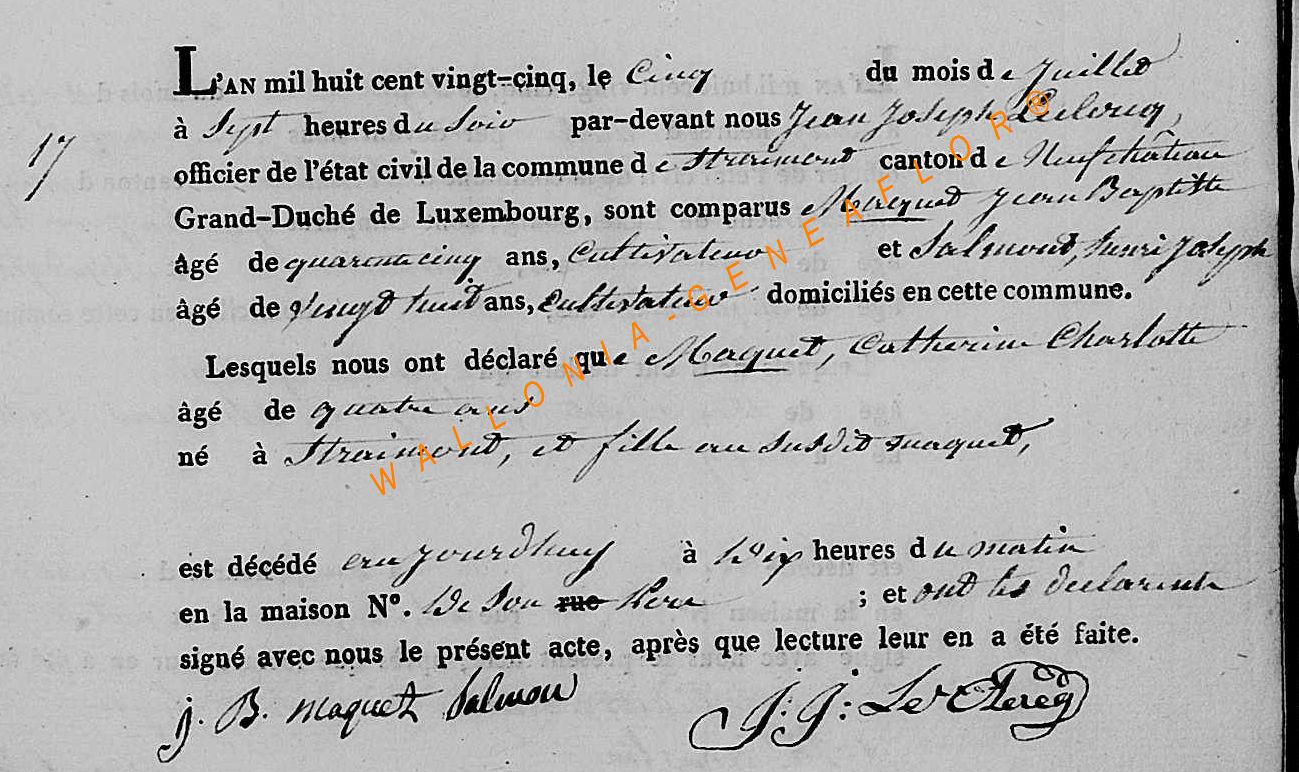 L'AN mil huit cent vingt-cinq, le Cinq du mois de Juillet
à Sept heures du Soir par-devant nous Jean Joseph Leclercq,
17
officier de l'état civil de la commune de Straimont canton de Neufchâteau
Grand-Duché de Luxembourg, sont comparus Maquet Jean Baptiste
âgé de quarante cinq ans, Cultivateur et Salmont, henri Joseph
âgé de Vingt huit ans, Cultivateur domiciliés en cette commune.
Lesquels nous ont déclaré que Maquet, Catherine Charlotte
âgé de quatre ans
né à Straimont, et fille au Susdit maquet,
est décédé aujourdhuy à Dix heures du matin
en la maison N°. De Son rue Pere ; et ont les declarants
signé avec nous le présent acte, après que lecture leur en a été faite.
j. B. maquet Salmon J: J: Le Clercq
WALLONIA-GENEAFLOR®